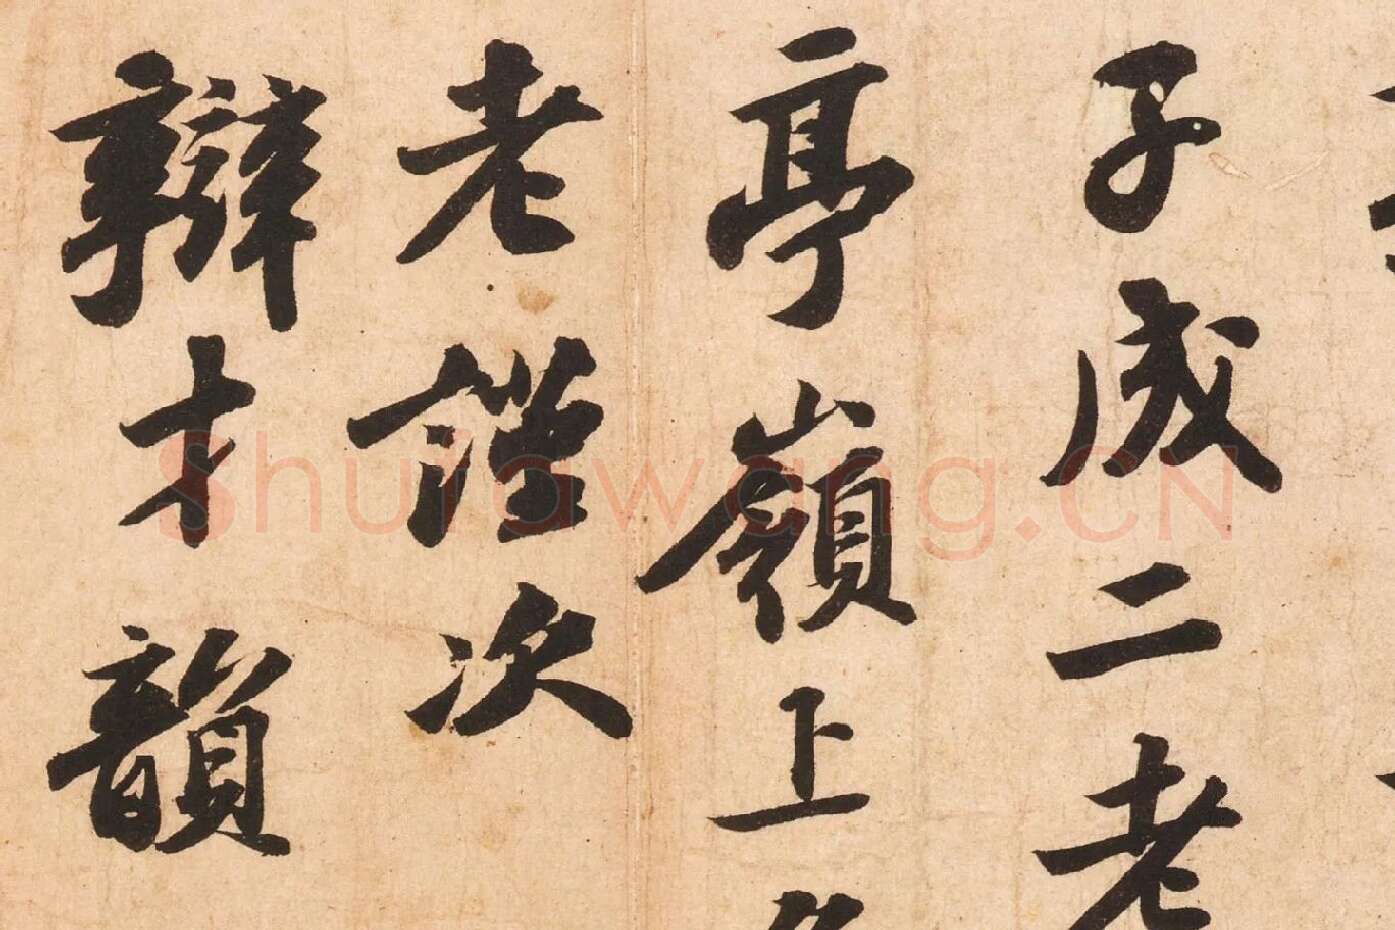 子成二老
亭嶺上名
老謹次
辯才韻
Shufawang.CN